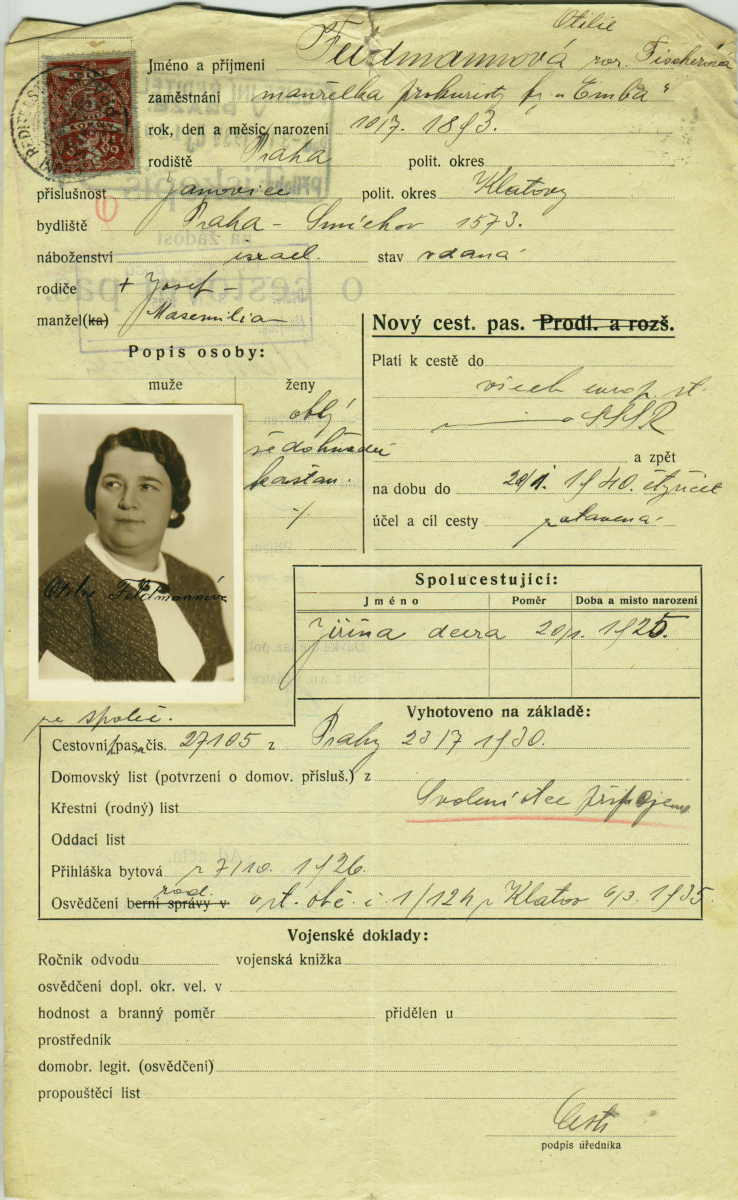 Otilie
Jméno a příjmení Feldmannová roz. Fischerová
zaměstnání manželka prokuristy fy „Emba"
rok, den a měsíc narození 10/7. 1893.
rodiště Praha polit. okres
příslušnost Janovice polit. okres Klatovy
bydliště Praha - Smíchov 1573.
náboženství israel. stav vdaná
rodiče + Josef -
manžel(ka) Maxmilian
Popis osoby:
muže ženy
oblý
šedohnědé
kaštan.
Nový cest. pas. Prodl. a rozš.
Platí k cestě do
všech europ. st.
SSSR
a zpět
na dobu do 20/1. 1940. čtyřicet
účel a cíl cesty
Otilie Feldmannová
Spolucestující:
Jméno Poměr Doba a místo narození
Jiřina dcera 20/1. 1925.
Vyhotoveno na základě:
Cestovní pas čís. 27105 z Prahy 23/7 1930.
Domovský list (potvrzení o domov. přísluš.) z
Křestní (rodný) list
Svolení otce připojeno
Oddací list
Přihláška bytová z 7/10. 1926.
Osvědčení berní správy v
rod. o st. obč. č. 1/124 z Klatov 6/3. 1935.
Vojenské doklady:
Ročník odvodu vojenská knížka
osvědčení dopl. okr. vel. v
hodnost a branný poměr přidělen u
prostředník
domobr. legit. (osvědčení)
propouštěcí list
podpis úředníka